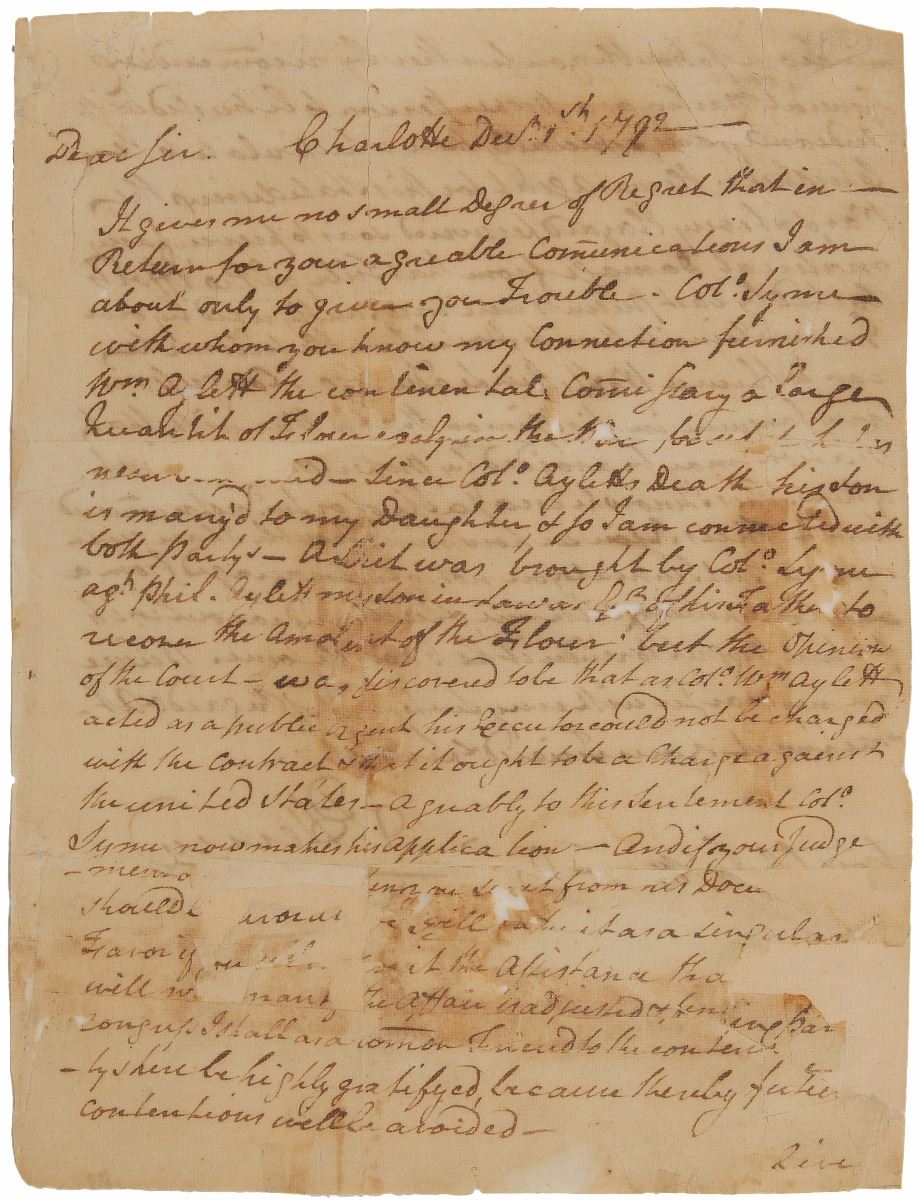 Dear Sir. Charlotte Decr. 1st 1792
It gives me no small Degree of Regret that in
Return for your agreable Comunications I am
about only to give you Trouble. Colo. Syme
with whom you know my Connection furnished
Wm Aylett the continental Comissary a large
of Flour early in the
never — Since Colo. Ayletts Death his son
is marry'd to my Daughter, & so I am connected with
both Partys — A Suit was brought by Colo. Syme
agt. Phil. Aylett my son in Law as Exr of his Father to
recover the Amount of the Flour; but the Opinion
of the Court — was discovered to be that as Colo. Wm Aylett
acted as a public Agent his Executor could not be charged
with the Contract & that it ought to be a Charge against
the united States — agreably to this Sentement Colo.
Syme now makes his Application — And if you Judge
from his Docu
-men
should it as a singular
Favor if the Assistance tha
will the Affair is adjusted &
I shall as a comon Friend to the conten
-ing Par
-tys here be highly gratifyed, because thereby futer
contentions will be avoided —
Give